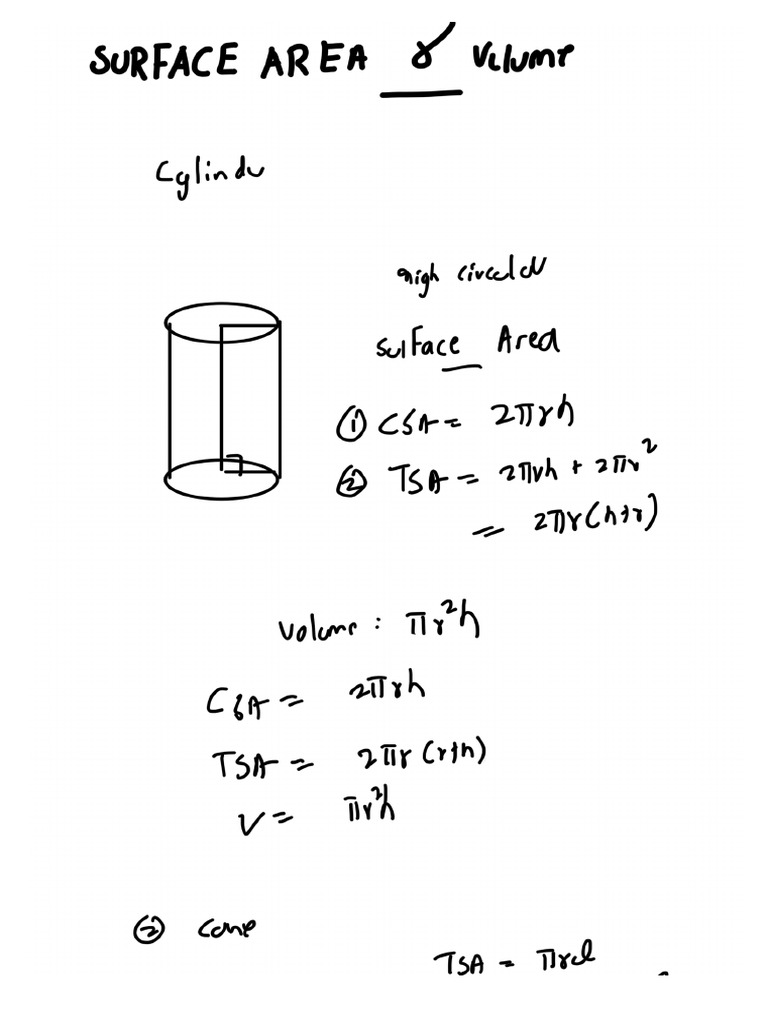 SURFACE AREA & Volume
Cylinder
right circular
Surface Area
① CSA = 2πrh
② TSA = 2πrh + 2πr²
= 2πr(h+r)
Volume : πr²h
CSA = 2πrh
TSA = 2πr(r+h)
V = πr²h
② Cone
TSA = πrl